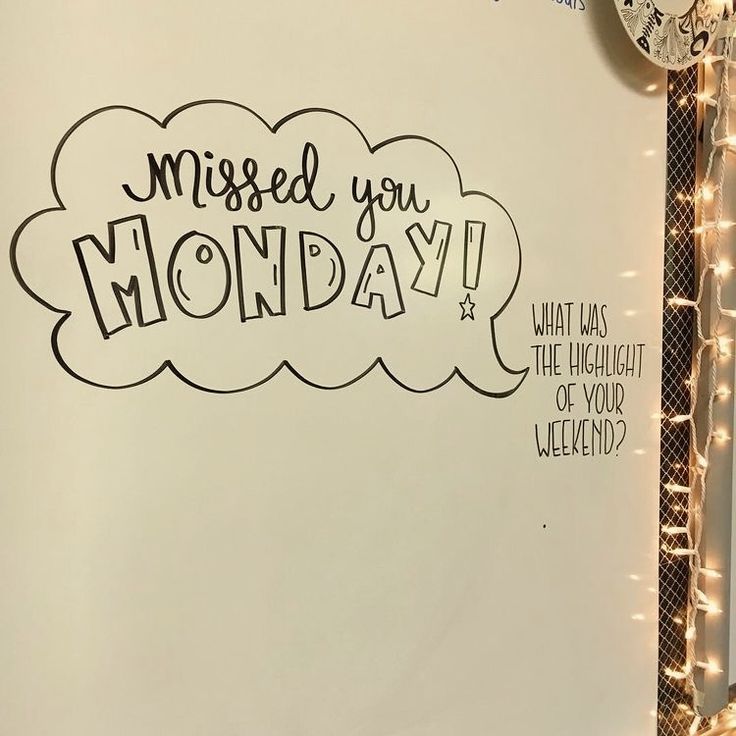 Missed you
MONDAY!
WHAT WAS
THE HIGHLIGHT
OF YOUR
WEEKEND?